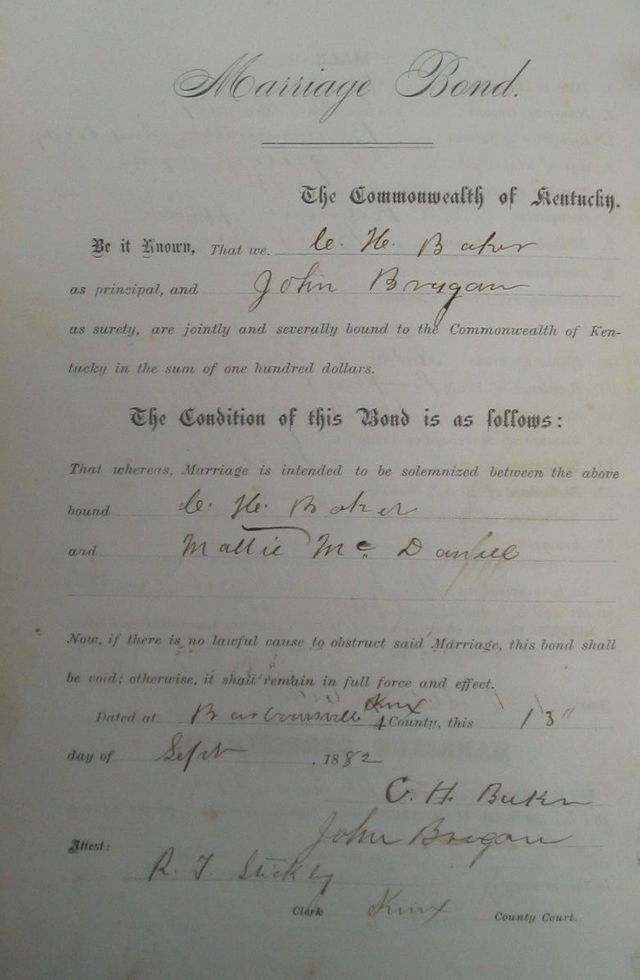 Marriage Bond.
The Commonwealth of Kentucky.
Be it Known, That we. C. H. Baker
as principal, and John Brogan
as surety, are jointly and severally bound to the Commonwealth of Ken-
tucky in the sum of one hundred dollars.
The Condition of this Bond is as follows:
That whereas, Marriage is intended to be solemnized between the above
bound C. H. Baker
and Mattie Mc Daniel
Now, if there is no lawful cause to obstruct said Marriage, this bond shall
be void; otherwise, it shall remain in full force and effect.
Dated at Barbourville Knox County, this 13"
day of Sept. 1882
C. H. Baker
John Brogan
Attest:
R. T. Stickley
Clerk Knox County Court.